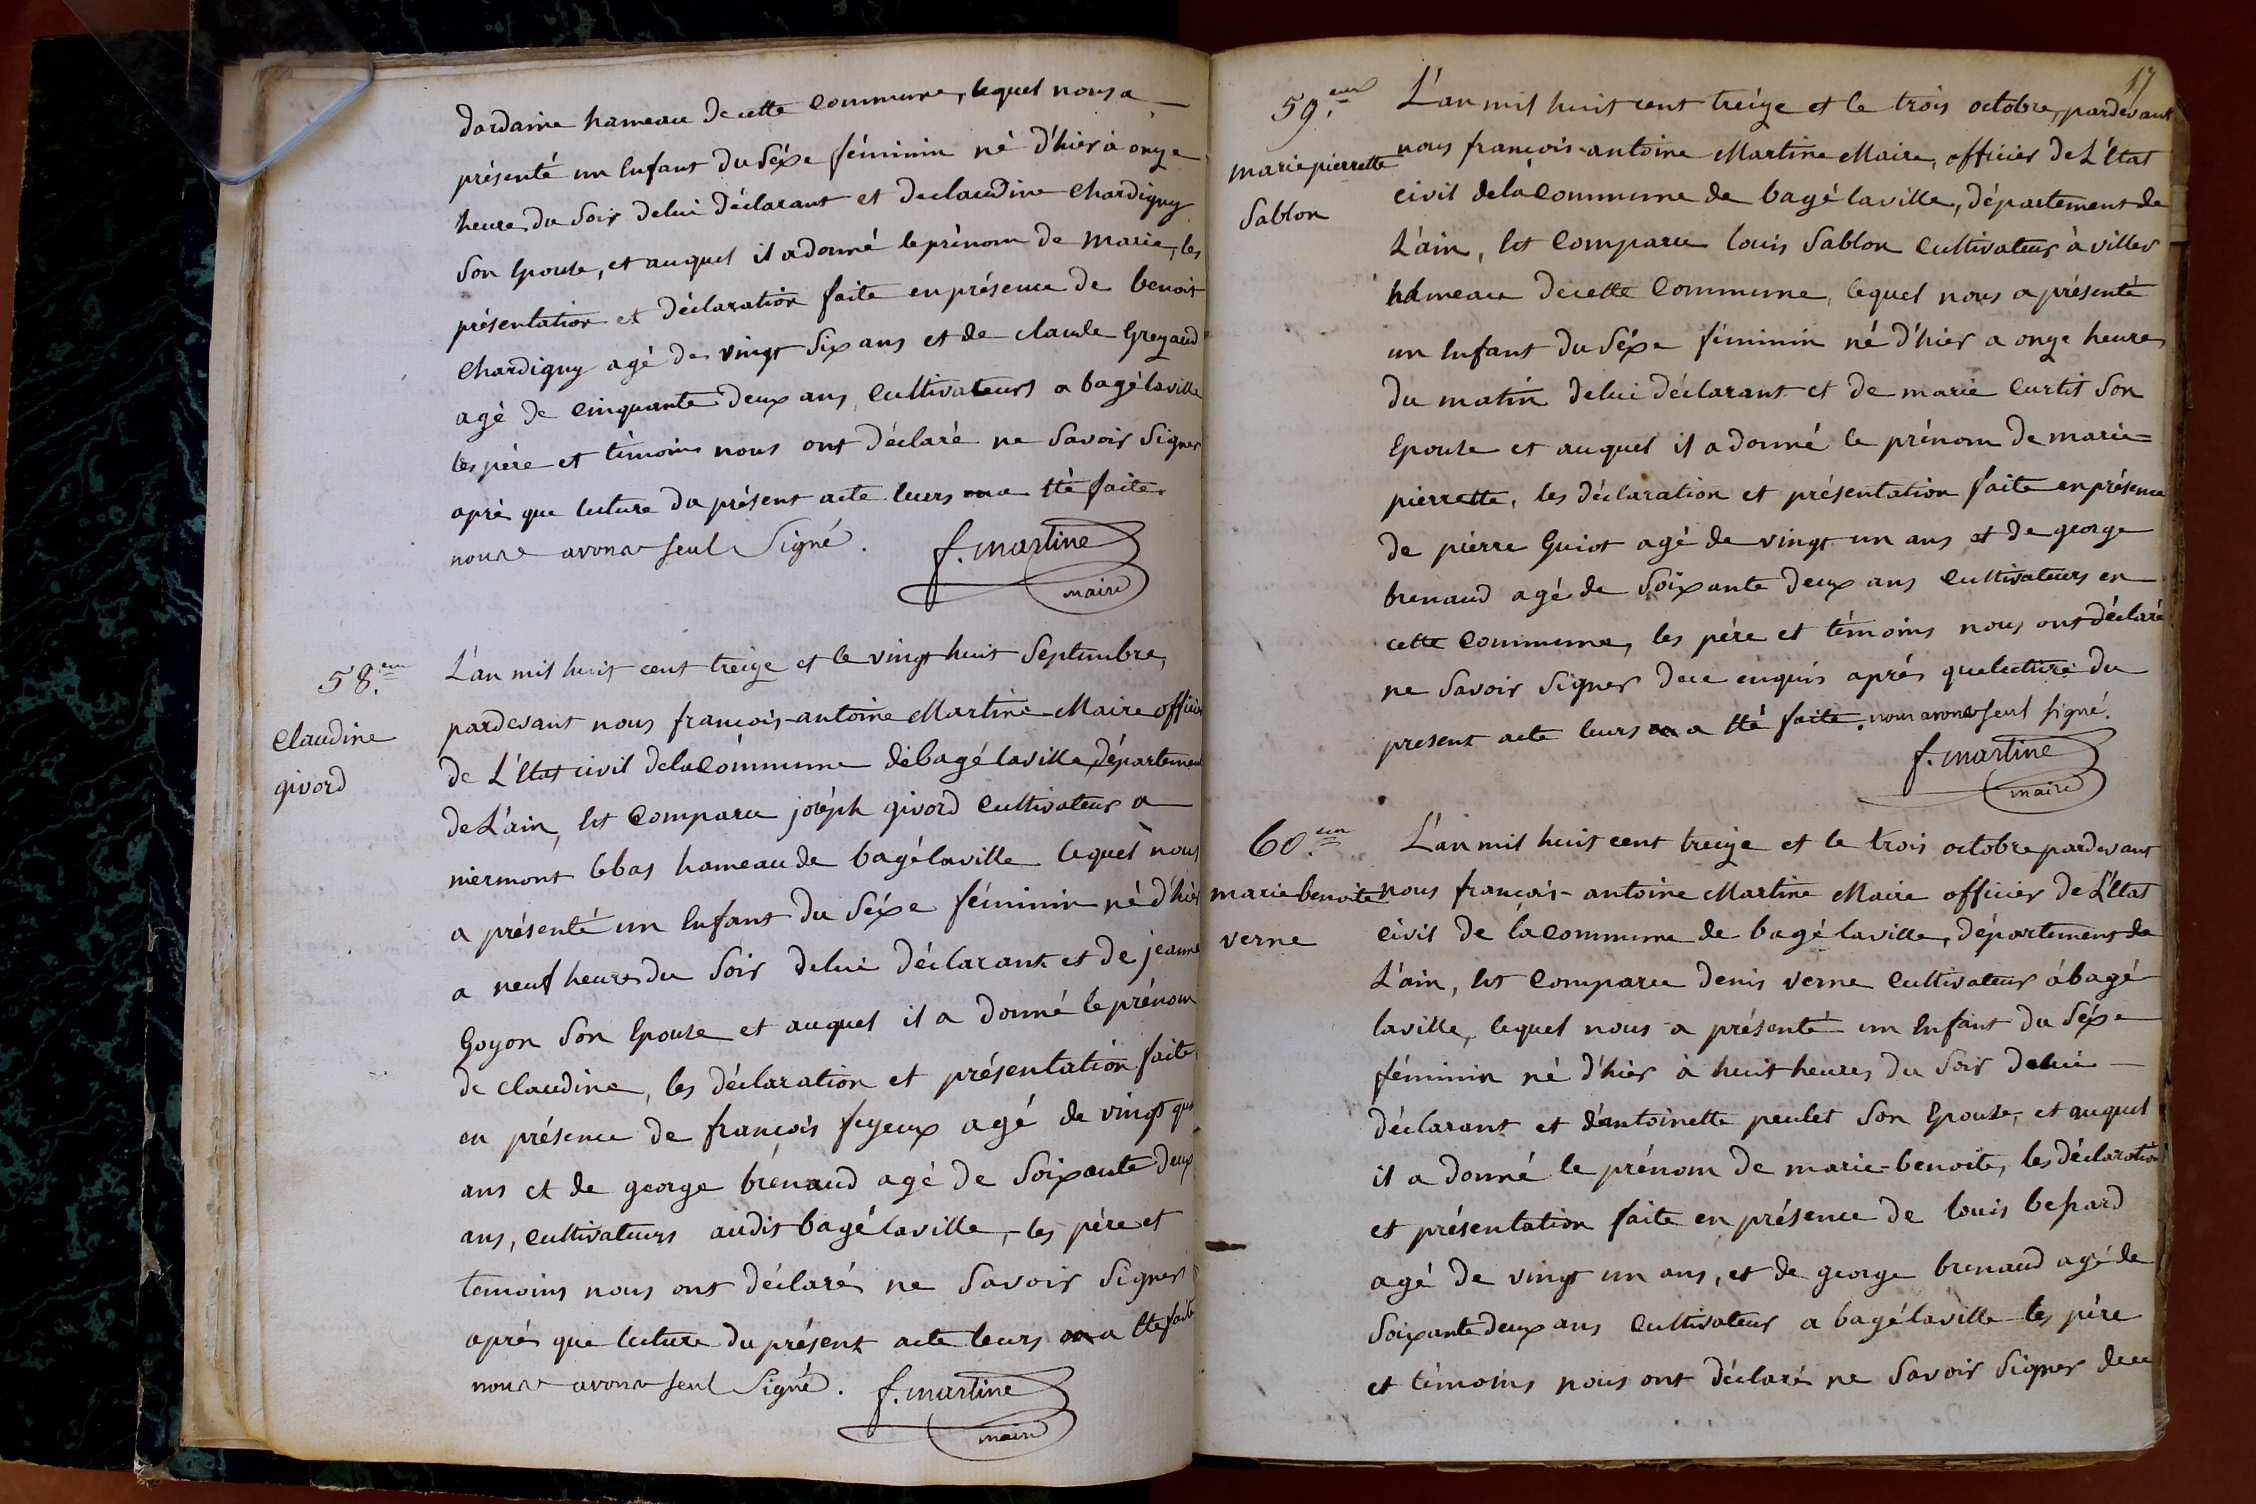 dordaine hameau de cette commune, lequel nous a
présenté un Enfant du Séxe féminin né d'hier à onze
heure du Soir delui déclarant et de claudine Chardigny
Son Epouse, et auquel il a donné le prénom de Marie, les
présentation et déclaration faite en présence de benoit
Chardigny agé de vingt Six ans et de claude Greyaud
agé de cinquante deux ans, Cultivateurs a bagé laville
les père et témoins nous ont déclaré ne Savoir Signer
aprè que lecture du présent acte leurs en a Eté faite.
nous avons seul Signé.
f. Martine
maire
58.em
Claudine
givord
L'an mil huit cent treize et le vingt huit Septembre,
pardevant nous françois-antoine Martine Maire officier
de L'Etat civil delacommune de bagé laville, département
de L'ain, Est Comparu joséph givord Cultivateur a
niermont lebas hameau de bagé laville lequel nous
a présenté un Enfant du Séxe féminin né d'hier
a neuf heures du Soir delui déclarant et de jeanne
Goyon Son Epouse et auquel il a donné le prénom
de Claudine, les déclaration et présentation faite
en présence de françois feyeux agé de vingt
ans et de george brénaud agé de Soixante deux
ans, Cultivateurs audit bagé laville, les père et
temoins nous ont déclaré ne Savoir Signer
aprè que lecture du présent acte leurs en a Eté faite
nous avons seul Signé.
f. Martine
maire
17
59.em
marie pierrette
Sablon
L'an mil huit cent treize et le trois octobre, pardevant
nous françois-antoine Martine Maire, officier de L'Etat
civil delacommune de bagé laville, département de
L'ain, Est Comparu louis Sablon Cultivateur à villes
hameau decette Commune, lequel nous a présenté
un Enfant du Séxe féminin né d'hier a onze heures
du matin delui déclarant et de marie Curtit Son
Epouse et auquel il a donné le prénom de marie=
pierrette, les déclaration et présentation faite enprésence
de pierre Guiot agé de vingt un ans et de george
brenaud agé de Soixante deux ans Cultivateurs en
cette Commune, les père et témoins nous ont déclaré
ne Savoir Signer dece enquis aprés quelecture du
present acte leurs en a Eté faite, nous avons seul signé.
f. Martine
maire
60.em
marie benoite
verne
L'an mil huit cent treize et le trois octobre pardevant
nous françois-antoine Martine Maire officier de L'Etat
civil de lacommune de bagé laville, département de
L'ain, Est Comparu denis verne Cultivateur à bagé
laville, lequel nous a présenté un Enfant du Séxe
féminin né d'hier à huit heures du Soir delui
déclarant et d'antoinette peulet Son Epouse, et auquel
il a donné le prénom de marie-benoite, les déclaration
et présentation faite en présence de louis bessard
agé de vingt un ans, et de george brenaud agé de
Soixante deux ans Cultivateur a bagé laville les père
et témoins nous ont déclaré ne Savoir Signer dece